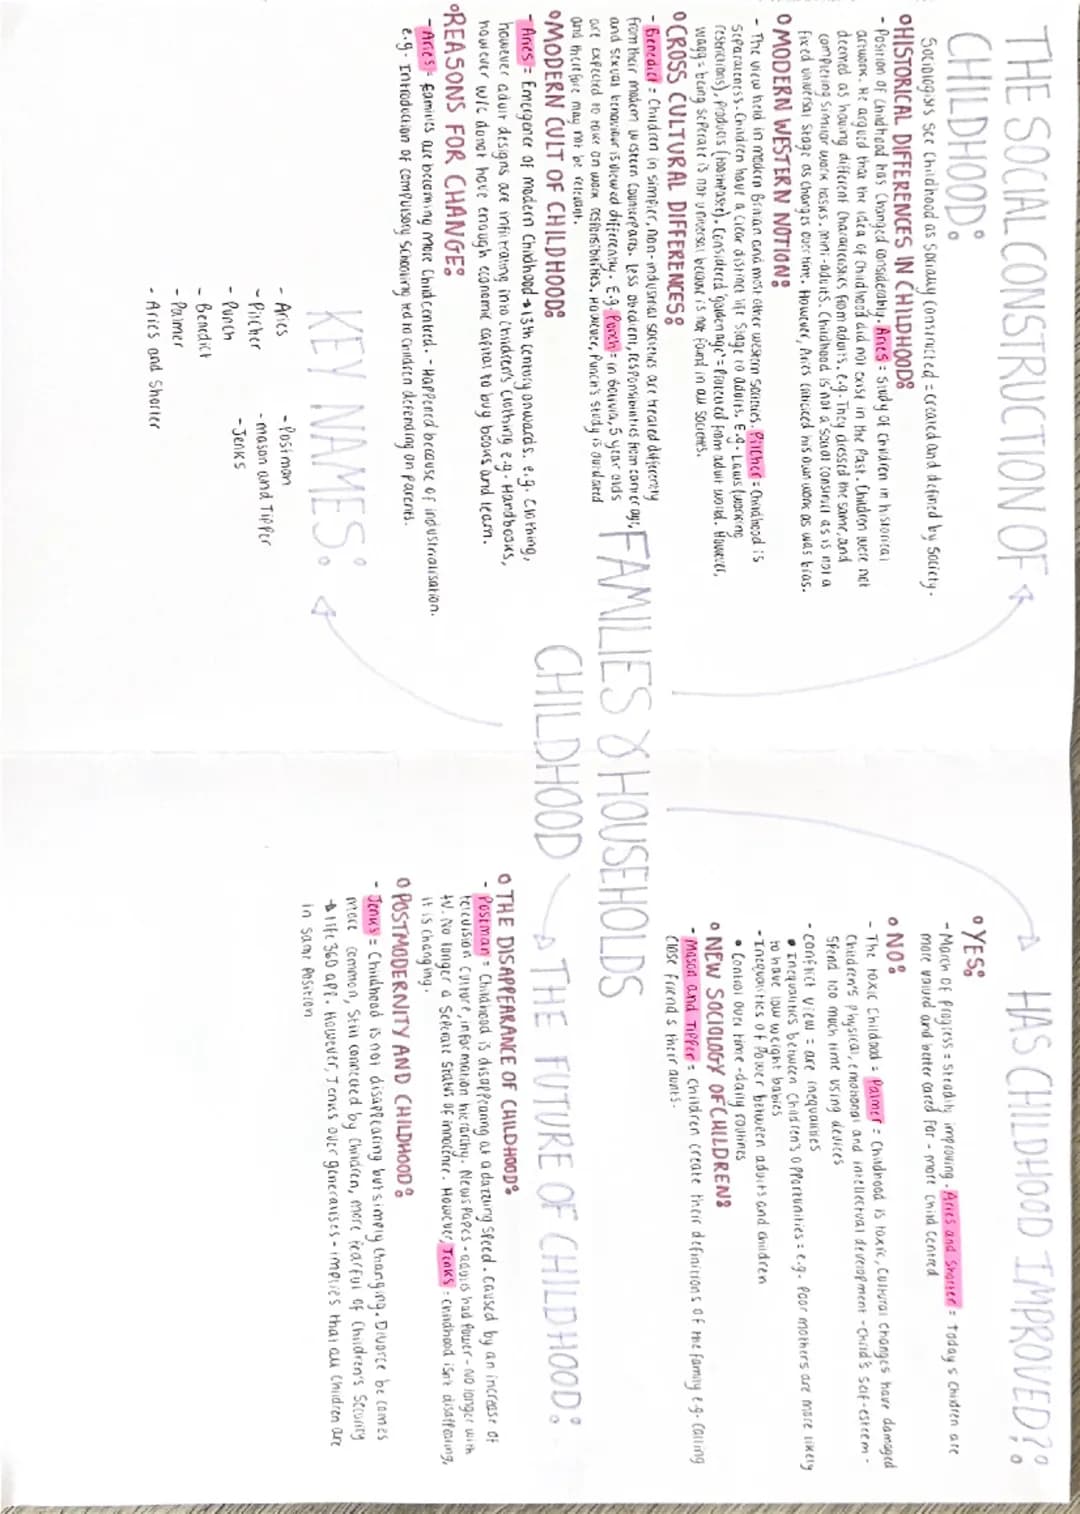 THE SOCIAL CONSTRUCTION OF
CHILDHOOD:
Sociologists see childhood as socially constructed = created and defined by society.
HISTORICAL DIFFERENCES IN CHILDHOOD:
- Position of childhood has changed considerably. Aries = study of children in historical
artwork. He argued that the idea of childhood did not exist in the past. Children were not
deemed as having different characteristics from adults. e.g. They dressed the same, and
completing similar work tasks. mini-adults. Childhood is not a social construct as is not a
fixed universal stage as changes over time. However, Aries criticised his own work as was bias.
MODERN WESTERN NOTION:
- The view held in modern Britain and most other western societies. Pilcher = Childhood is
separateness. Children have a clear distinct life stage to adults. E.g. Laws (working
restrictions), Products (toothpaste). Considered 'golden age' = Protected from adult world. However,
wagg = being seperate is not universal because is not found in all societies.
CROSS CULTURAL DIFFERENCES:
- Benedict = Children in simpler, non-industrial societies are treated differently
from their modern western counterparts. Less obedient, responsibilities from earlier age,
and sexual behaviour is viewed differently. E.g. Punch = in Bolivia, 5 year olds
are expected to take on work responsibilities. However, Punch's study is outdated
and therefore may not be relevant.
MODERN CULT OF CHILDHOOD:
- Aries = Emergence of modern childhood → 13th century onwards. e.g. Clothing,
however adult designs are infiltrating into children's clothing e.g. Handbooks,
however w/c do not have enough economic capital to buy books and learn.
REASONS FOR CHANGE:
- Aries = Families are becoming more child centred. - Happened because of industrialisation.
e.g. Introduction of compulsory schooling led to children depending on parents.
KEY NAMES:
- Aries
- Pilcher
- Punch
- Benedict
- Palmer
- Aries and Shorter
- Postman
- mason and Tipper
- Jenks
FAMILIES & HOUSEHOLDS
CHILDHOOD
HAS CHILDHOOD IMPROVED?:
YES:
- March of Progress = Steadily improving. Aries and Shorter = Today's children are
more valued and better cared for - more child centred
NO:
- The toxic Childhood = Palmer = Childhood is toxic, cultural changes have damaged
Children's physical, emotional and intellectual development - child's self-esteem -
Spend too much time using devices
- conflict view = are inequalities
• Inequalities between Children's opportunities = e.g. Poor mothers are more likely
to have low weight babies
- Inequalities of Power between adults and children
• Control over time - daily routines
NEW SOCIOLOGY OF CHILDREN:
- Mason and Tipper = Children create their definitions of the family e.g. calling
close friends their aunts.
THE FUTURE OF CHILDHOOD:
THE DISAPPEARANCE OF CHILDHOOD:
- Postman = Childhood is disappearing at a dazzling speed. Caused by an increase of
television culture, information hierarchy. News Papes - adults had power - NO longer with
tv. No longer a seperate status of innocence. However, Jenks = childhood isn't disappearing,
it is changing.
POSTMODERNITY AND CHILDHOOD:
- Jenks = Childhood is not disappearing but simply changing. Divorce becomes
more common, still connected by children, more fearful of children's security
→ life 360 app. However, Jenks over generalises - implies that all children are
in same position